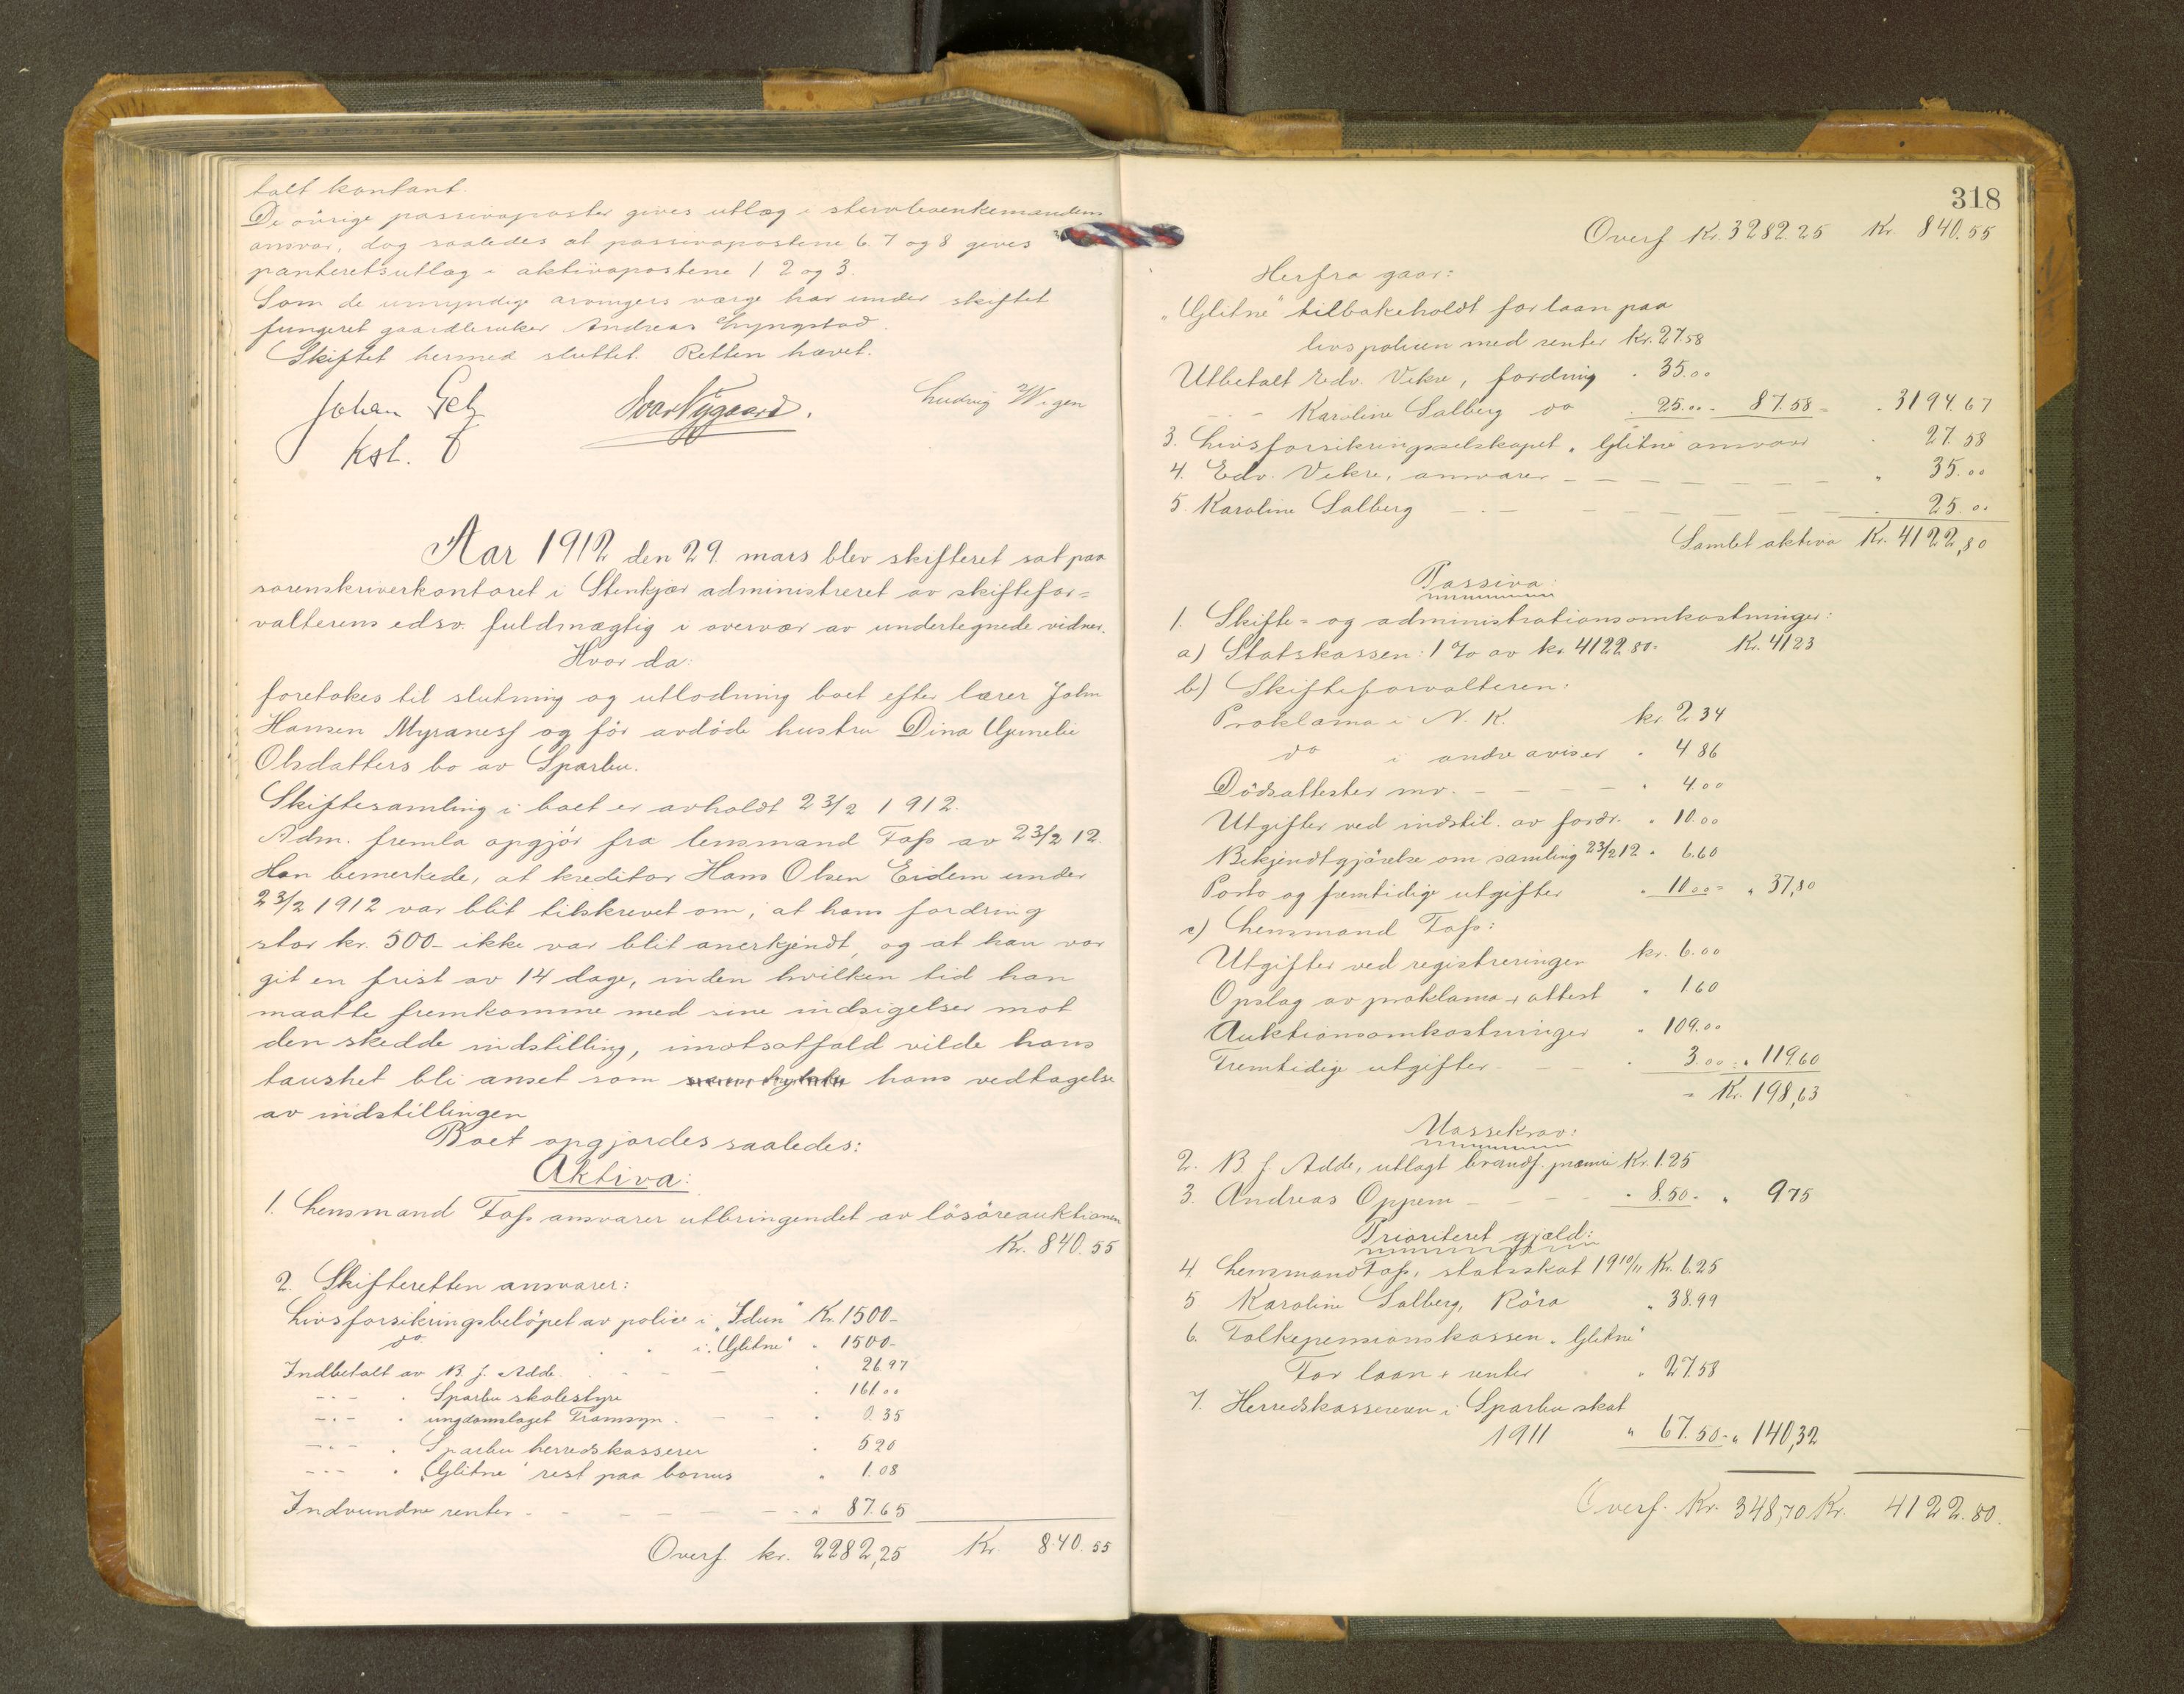 talt kontant.
De övrige passivaposter gives utlæg i stervboenkemandens
ansvar, dog saaledes at passivapostene 6. 7 og 8 gives
panteretsutlæg i aktivapostene 1 2 og 3.
Som de umyndige arvingers værge har under skiftet
fungeret gaardbruker Andreas Lyngstad.
Skiftet hermed sluttet. Retten hævet.
Johan Selj Ivar Nygaard. Ludvig Wigen
kst.
Aar 1912 den 29. mars blev skifteret sat paa
sorenskriverkontoret i Stenkjær administreret av skiftefor=
valterens edsv. fuldmægtig i overvær av undertegnede vidner.
Hvor da:
foretokes til slutning og utlodning boet efter lærer John
Hansen Myranesf og för avdöde hustru Dina
Olsdatters bo av Sparbu.
Skiftesamling i boet er avholdt 23/2 1912.
Adm. fremla opgjör fra lensmand Fafs av 23/2 12.
Han bemerkede, at kreditor Hans Olsen Eidem under
23/2 1912 var blit tilskrevet om, at hans fordring
stor kr. 500- ikke var blit anerkjendt, og at han var
git en frist av 14 dage, inden hvilken tid han
maatte fremkomme med sine indsigelser mot
den skedde indstilling, imotsatfald vilde hans
taushet bli anset som hans vedtagelse
av indstillingen
Boet opgjordes saaledes:
Aktiva:
1. Lensmand Fafs ansvarer utbringendet av lösöreauktionen
Kr. 840.55
2. Skifteretten ansvarer:
Livsforsikringsbelöpet av police i "Idun" Kr. 1500-
do. i "Glitne" " 1500-
Indbetalt av B. J. Adde. - - - " 26 97
-"- " Sparbu skolestyre " 161 00
-"- " ungdomslaget Framsyn. - - " 0.35
-"- " Sparbu herredskasserer " 5 20
-"- " "Glitne" rest paa bonus " 1.08
Indvundne renter - - - - - " 87.65
Overf. kr. 2282,25 Kr. 840.55
318
Overf Kr. 3282.25 Kr. 840.55
Herfra gaar:
"Glitne" tilbakeholdt for laan paa
livspolicen med renter kr. 27.58
Utbetalt Edv. Vekre, fordring " 35.00
- " - Karoline Salberg do " 25.00 - 87.58 = " 3194.67
3. Livsforsikringsselskapet "Glitne ansvarer " 27.58
4. Edv. Vekre, ansvarer - - - - - - " 35.00
5. Karoline Salberg - " - - - - - - " 25.00
Samlet aktiva Kr. 4122,80
Passiva:
1. Skifte- og administrationsomkostninger:
a) Statskassen: 1 % av kr. 4122 80 = Kr. 41 23
b) Skifteforvalteren:
Proklama i N. K. kr. 2 34
do i andre aviser " 4 86
Dödsattester mv. - - - - " 4 00
Utgifter ved indstil. av fordr. " 10.00
Bekjendtgjörelse om samling 23/2 12 " 6.60
Porto og fremtidige utgifter " 10 00 = " 37,80
c) Lensmand Fafs:
Utgifter ved registreringen kr. 6.00
Opslag av proklama + attest " 1 60
Auktionsomkostninger " 109.00
Fremtidige utgifter - - - " 3.00 = " 119 60
= Kr. 198,63
Massekrav:
2. B. J. Adde, utlagt brandf. præmie Kr. 1.25
3. Andreas Oppem - - - - " 8.50 = " 9 75
Prioriteret gjæld:
4. Lensmand Fafs, statsskat 1910/11 Kr. 6.25
5 Karoline Salberg, Röra " 38.99
6. Folkepensionskassen "Glitne"
For laan + renter " 27.58
7. Herredskassereren i Sparbu skat
1911 " 67.50 = " 140,32
Overf. Kr. 348,70 Kr. 4122.80.